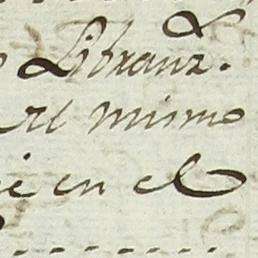 Libranz.
el mismo
en el